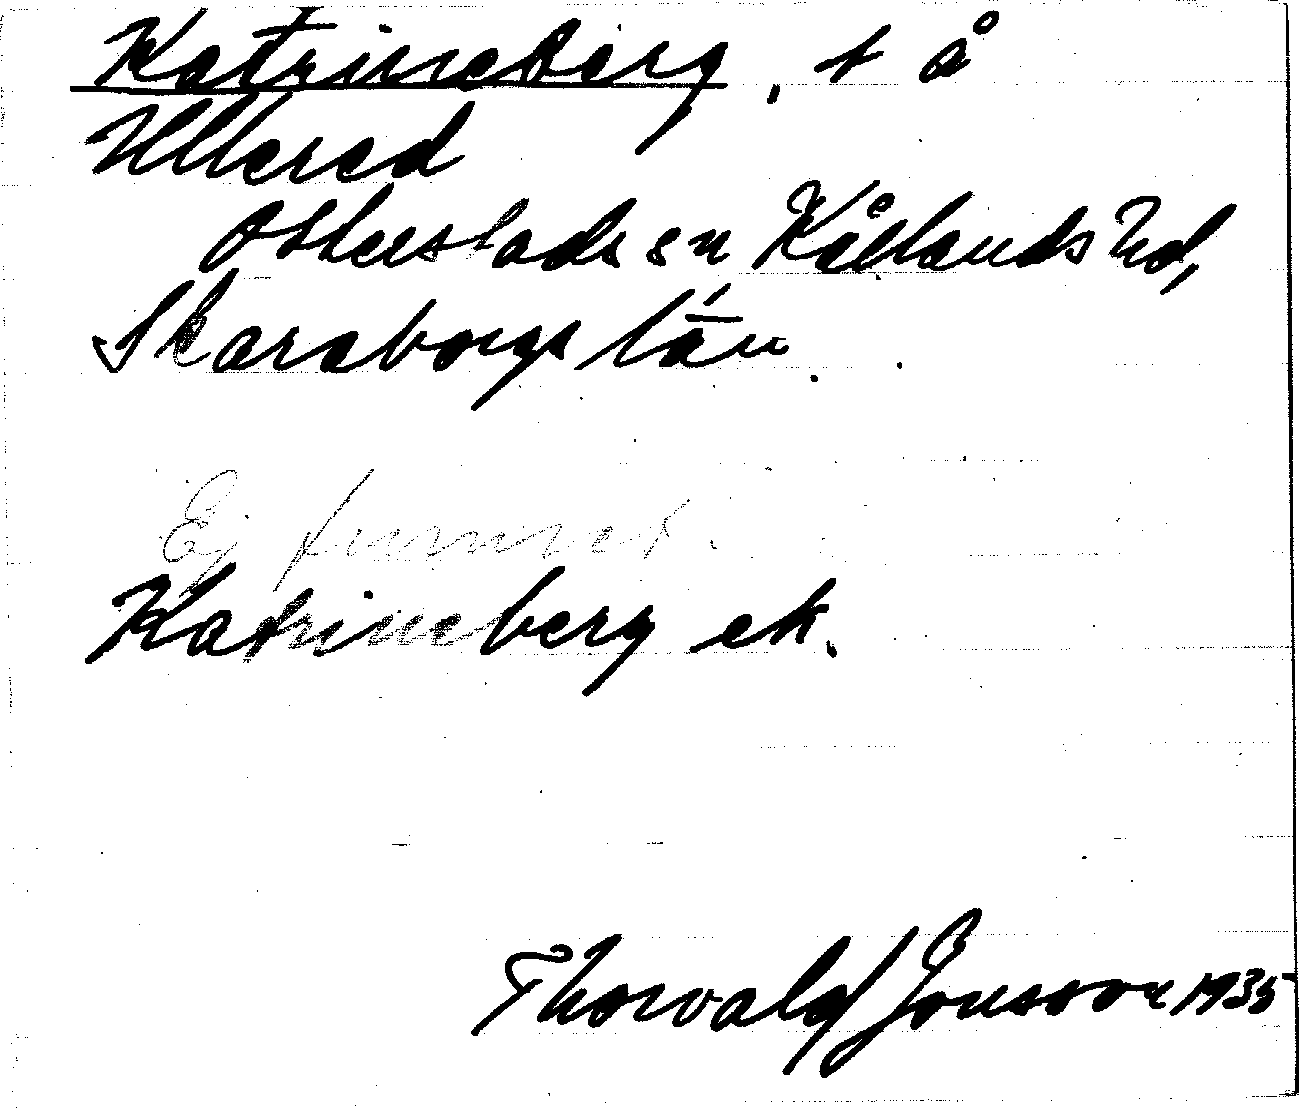 Katrineberg, t å
Ullered
Otterstads sn Kållands hd,
Skaraborgs län.
Ej funnet.
Katrineberg ek.
Thorvald Jonsson 1935